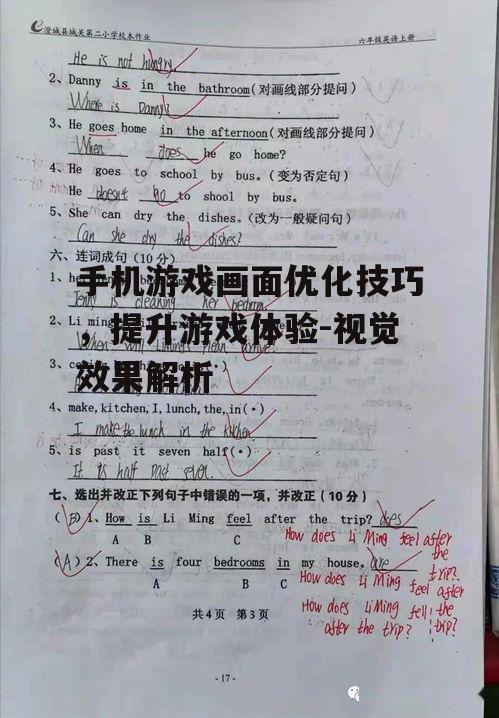 澄城县城关第二小学校本作业 六年级英语上册
He is not hungry.
2、Danny is in the bathroom(对画线部分提问)
Where is Danny?
3、He goes home in the afternoon(对画线部分提问)
When does he go home?
4、He goes to school by bus.(变为否定句)
He doesn't go to shool by bus.
5、She can dry the dishes.(改为一般疑问句)
Can she dry the dishes?
六、连词成句(10分)
手机游戏画面优化技巧
，提升游戏体验-视觉
效果解析
is cleaning her bedroom
2、Li ming
4、make,kitchen,I,lunch,the,in(·)
I make the lunch in the kitchen
5、is past it seven half(·)
It is half past seven.
七、选出并改正下列句子中错误的一项,并改正(10分)
(B)1、How is Li Ming feel after the trip? does
A B C
How does Li Ming feel after the trip?
(A)2、There is four bedrooms in my house. are
A B C
How does Li Ming feel after the trip?
How does Li Ming fell after the trip?
共4页 第3页
-17-